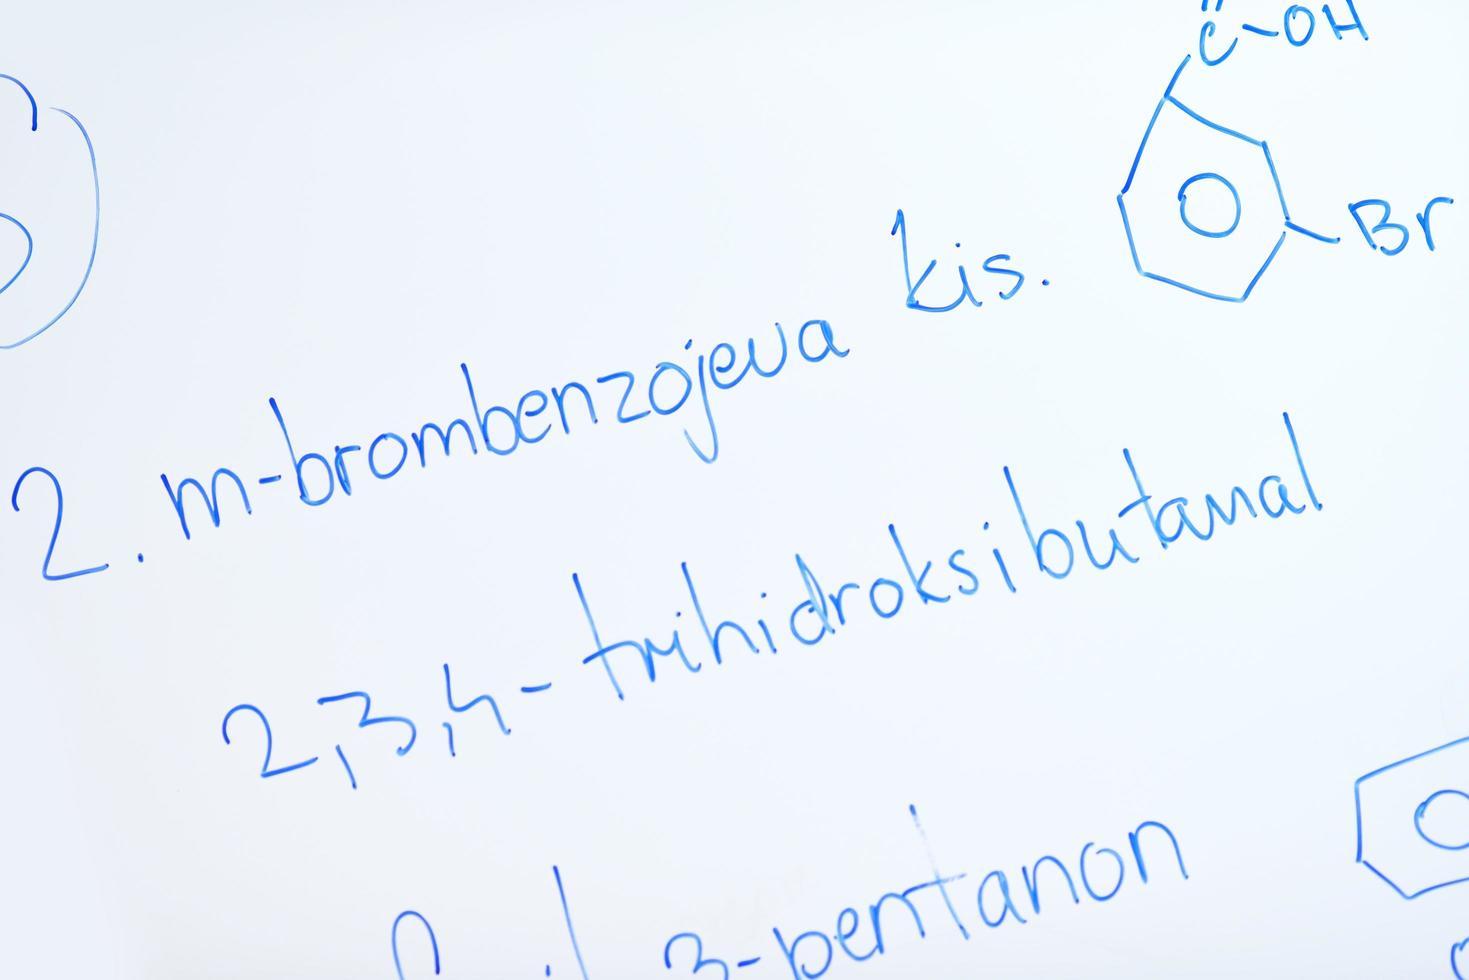 C-OH
Br
2. m-brombenzojeva kis.
2,3,4-trihidroksibutanal
3-pentanon